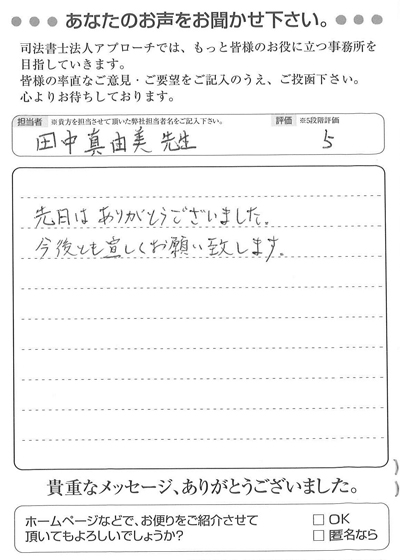 ●●● あなたのお声をお聞かせ下さい。 ●●●
司法書士法人アプローチでは、もっと皆様のお役に立つ事務所を
目指していきます。
皆様の率直なご意見・ご要望をご記入のうえ、ご投函下さい。
心よりお待ちしております。
担当者 ※貴方を担当させて頂いた弊社担当者名をご記入下さい。 評価 ※5段階評価
田中真由美先生 5
先日はありがとうございました。
今後とも宜しくお願い致します。
貴重なメッセージ、ありがとうございました。
ホームページなどで、お便りをご紹介させて
頂いてもよろしいでしょうか?
□ OK
□ 匿名なら